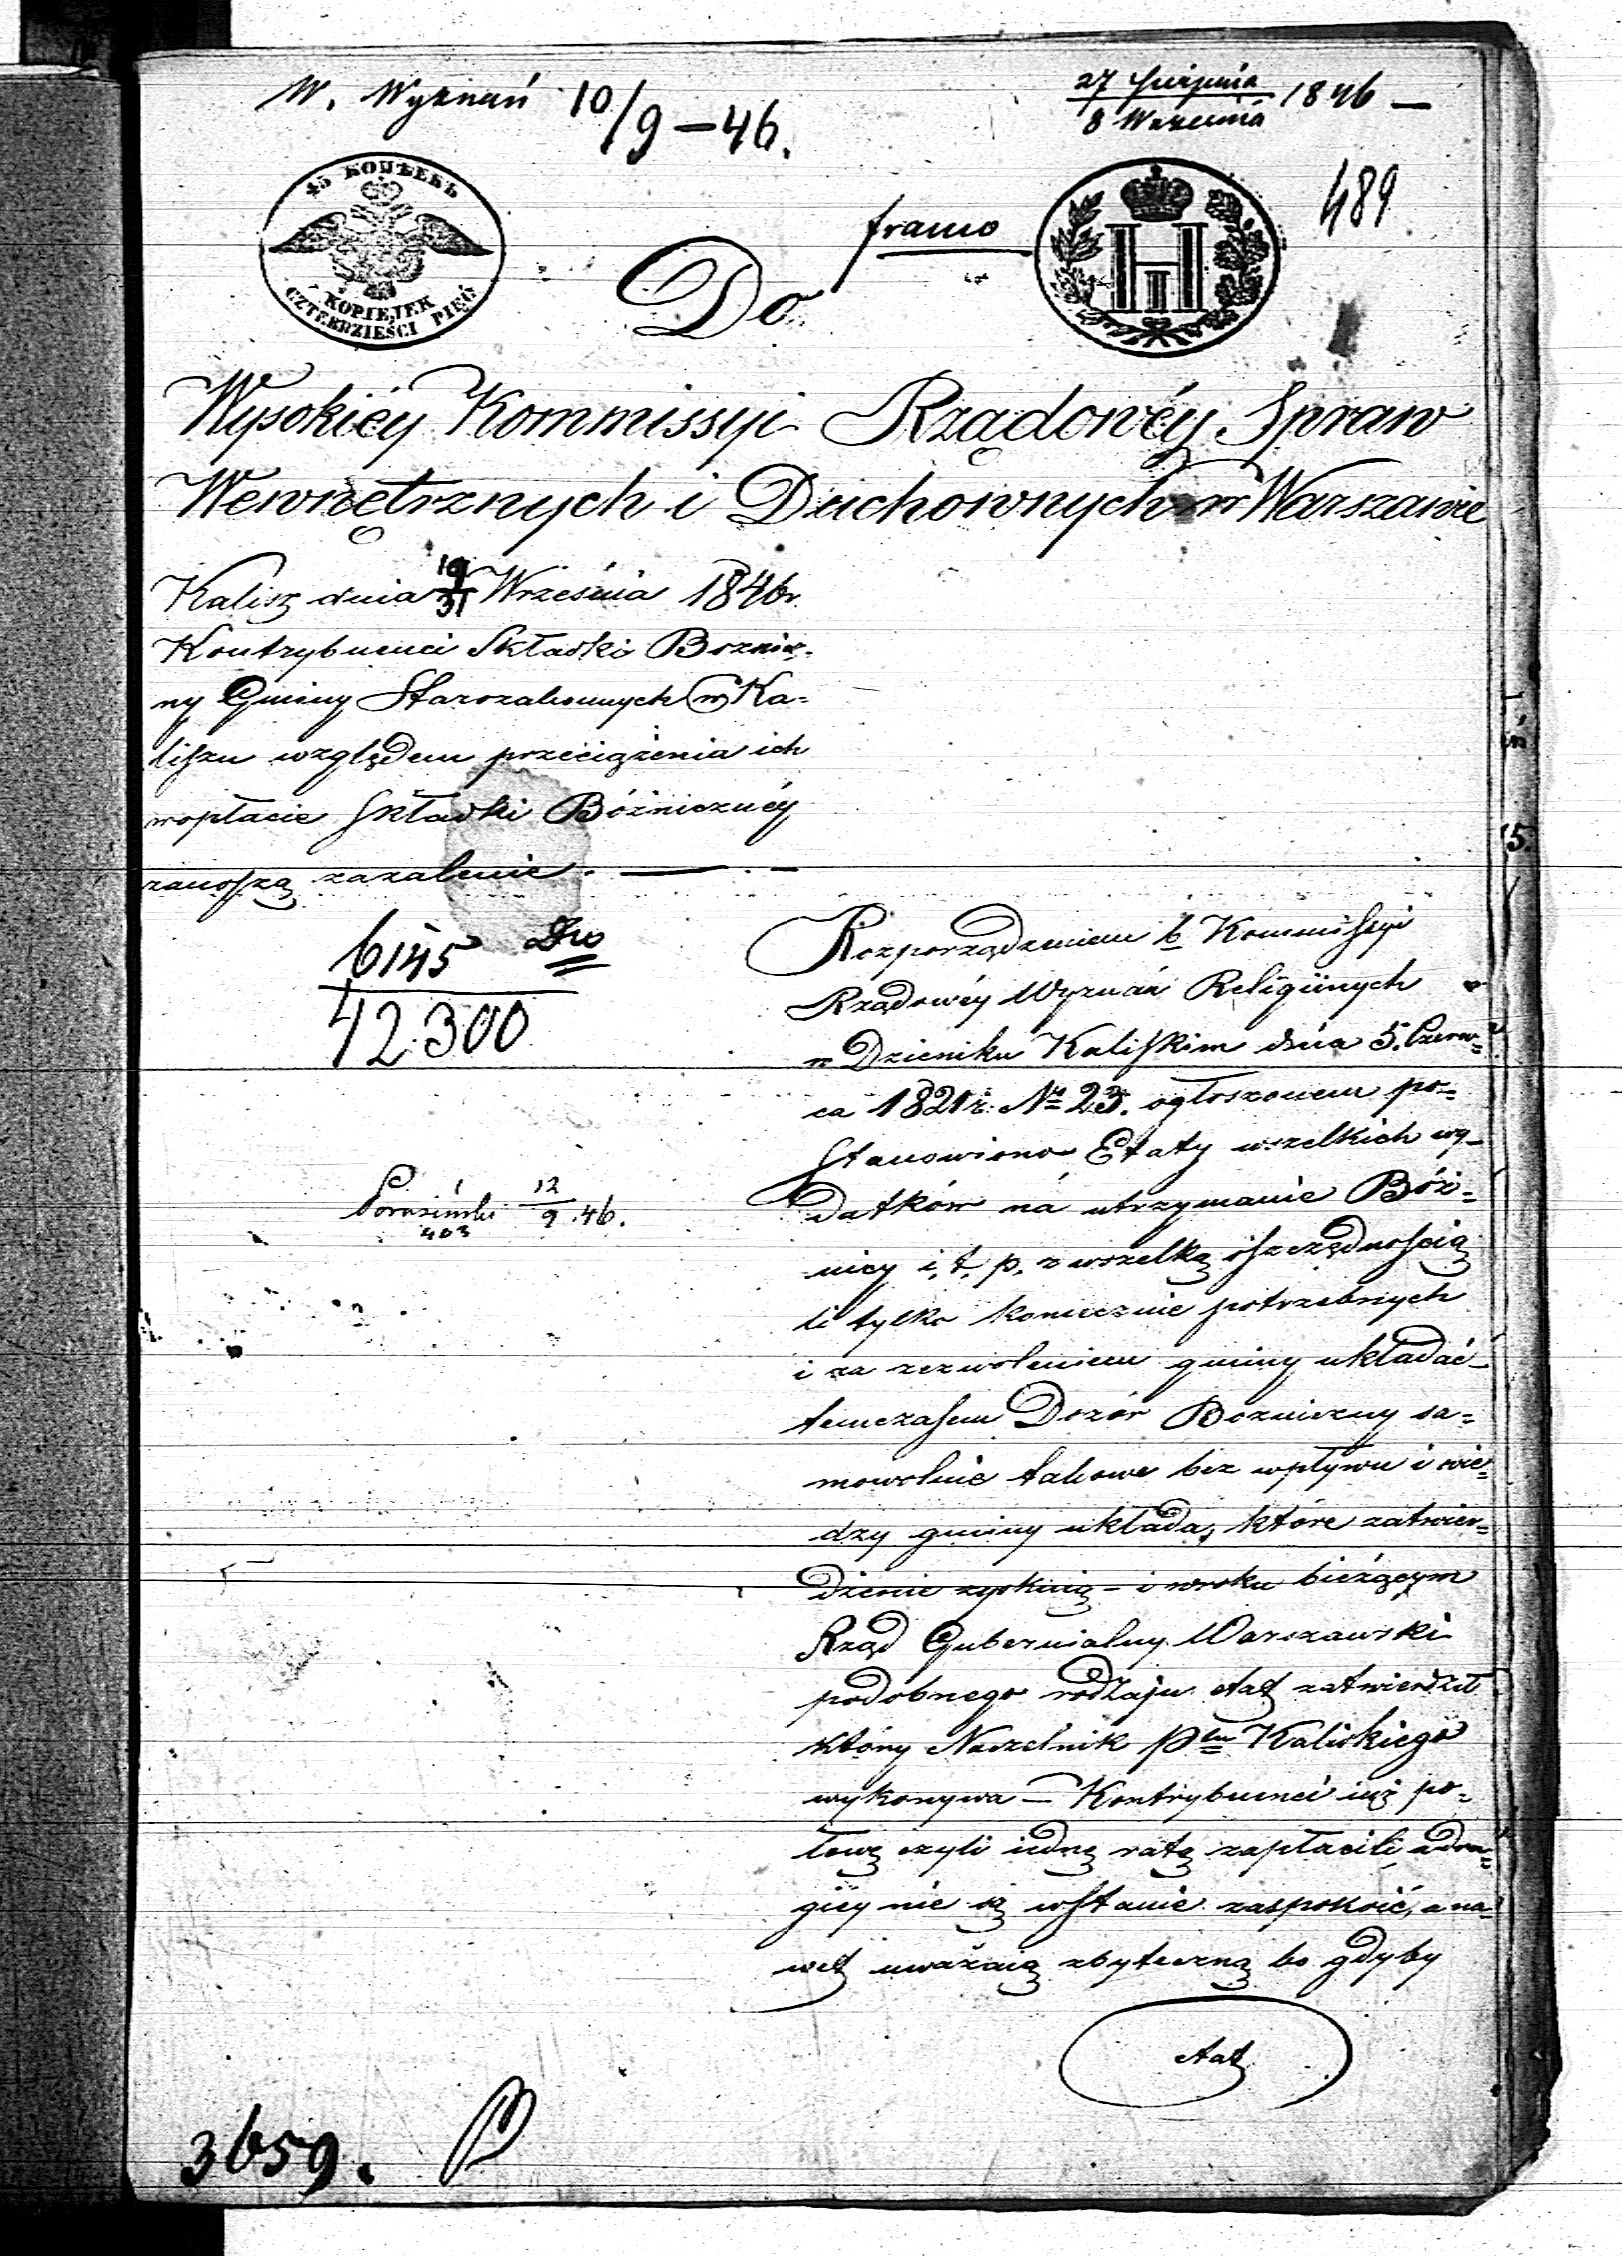 W. Wyznań 10/9 – 46.
27 Sierpnia
8 Września 1846 —
489
45 КОПѢЕКЪ
KOPIEJEK
CZTERDZIEŚCI PIĘĆ
franco
Do
Wysokiéy Kommissyi Rządowéy Spraw
Wewnętrznych i Duchownych w Warszawie
Kalisz dnia 19/31 Września 1846 r.
Kontrybuenci Składki Boznicz-
ny Gminy Starozakonnych w Ka-
liszu względem przeciążenia ich
wopłacie Składki Bóżnicznéy
zanoszą zażalenie. —
6145
42.300
12/9 .46.
403
Rozporządzeniem b Kommissyi
Rządowéy Wyznań Religiinych
w Dzieniku Kaliskim dnia 5. Czerw-
ca 1821 r. No 23. ogłoszonem po-
stanowiono Etaty wszelkich wy-
datków na utrzymanie Bóż-
nicy i, t, p. z wszelką oszczędnością
li tylko koniecznie potrzebnych
i za zezwoleniem gminy układać
temczasem Dozór Bozniczny sa-
mowolnie takowe bez wpływu i wie-
dzy gminy układa, które zatwier-
dzenie zyskuią – i wroku bieżącym
Rząd Gubernialny Warszawski
podobnego rodzaju etat zatwierdził
który Naczelnik Ptu Kaliskiego
wykonywa — Kontrybuenci iuż po-
łowę czyli iednę ratę zapłacili, a dru-
giey nie są wstanie zaspokoić, a na-
wet uważaią zbyteczną bo gdyby
etat
3659.